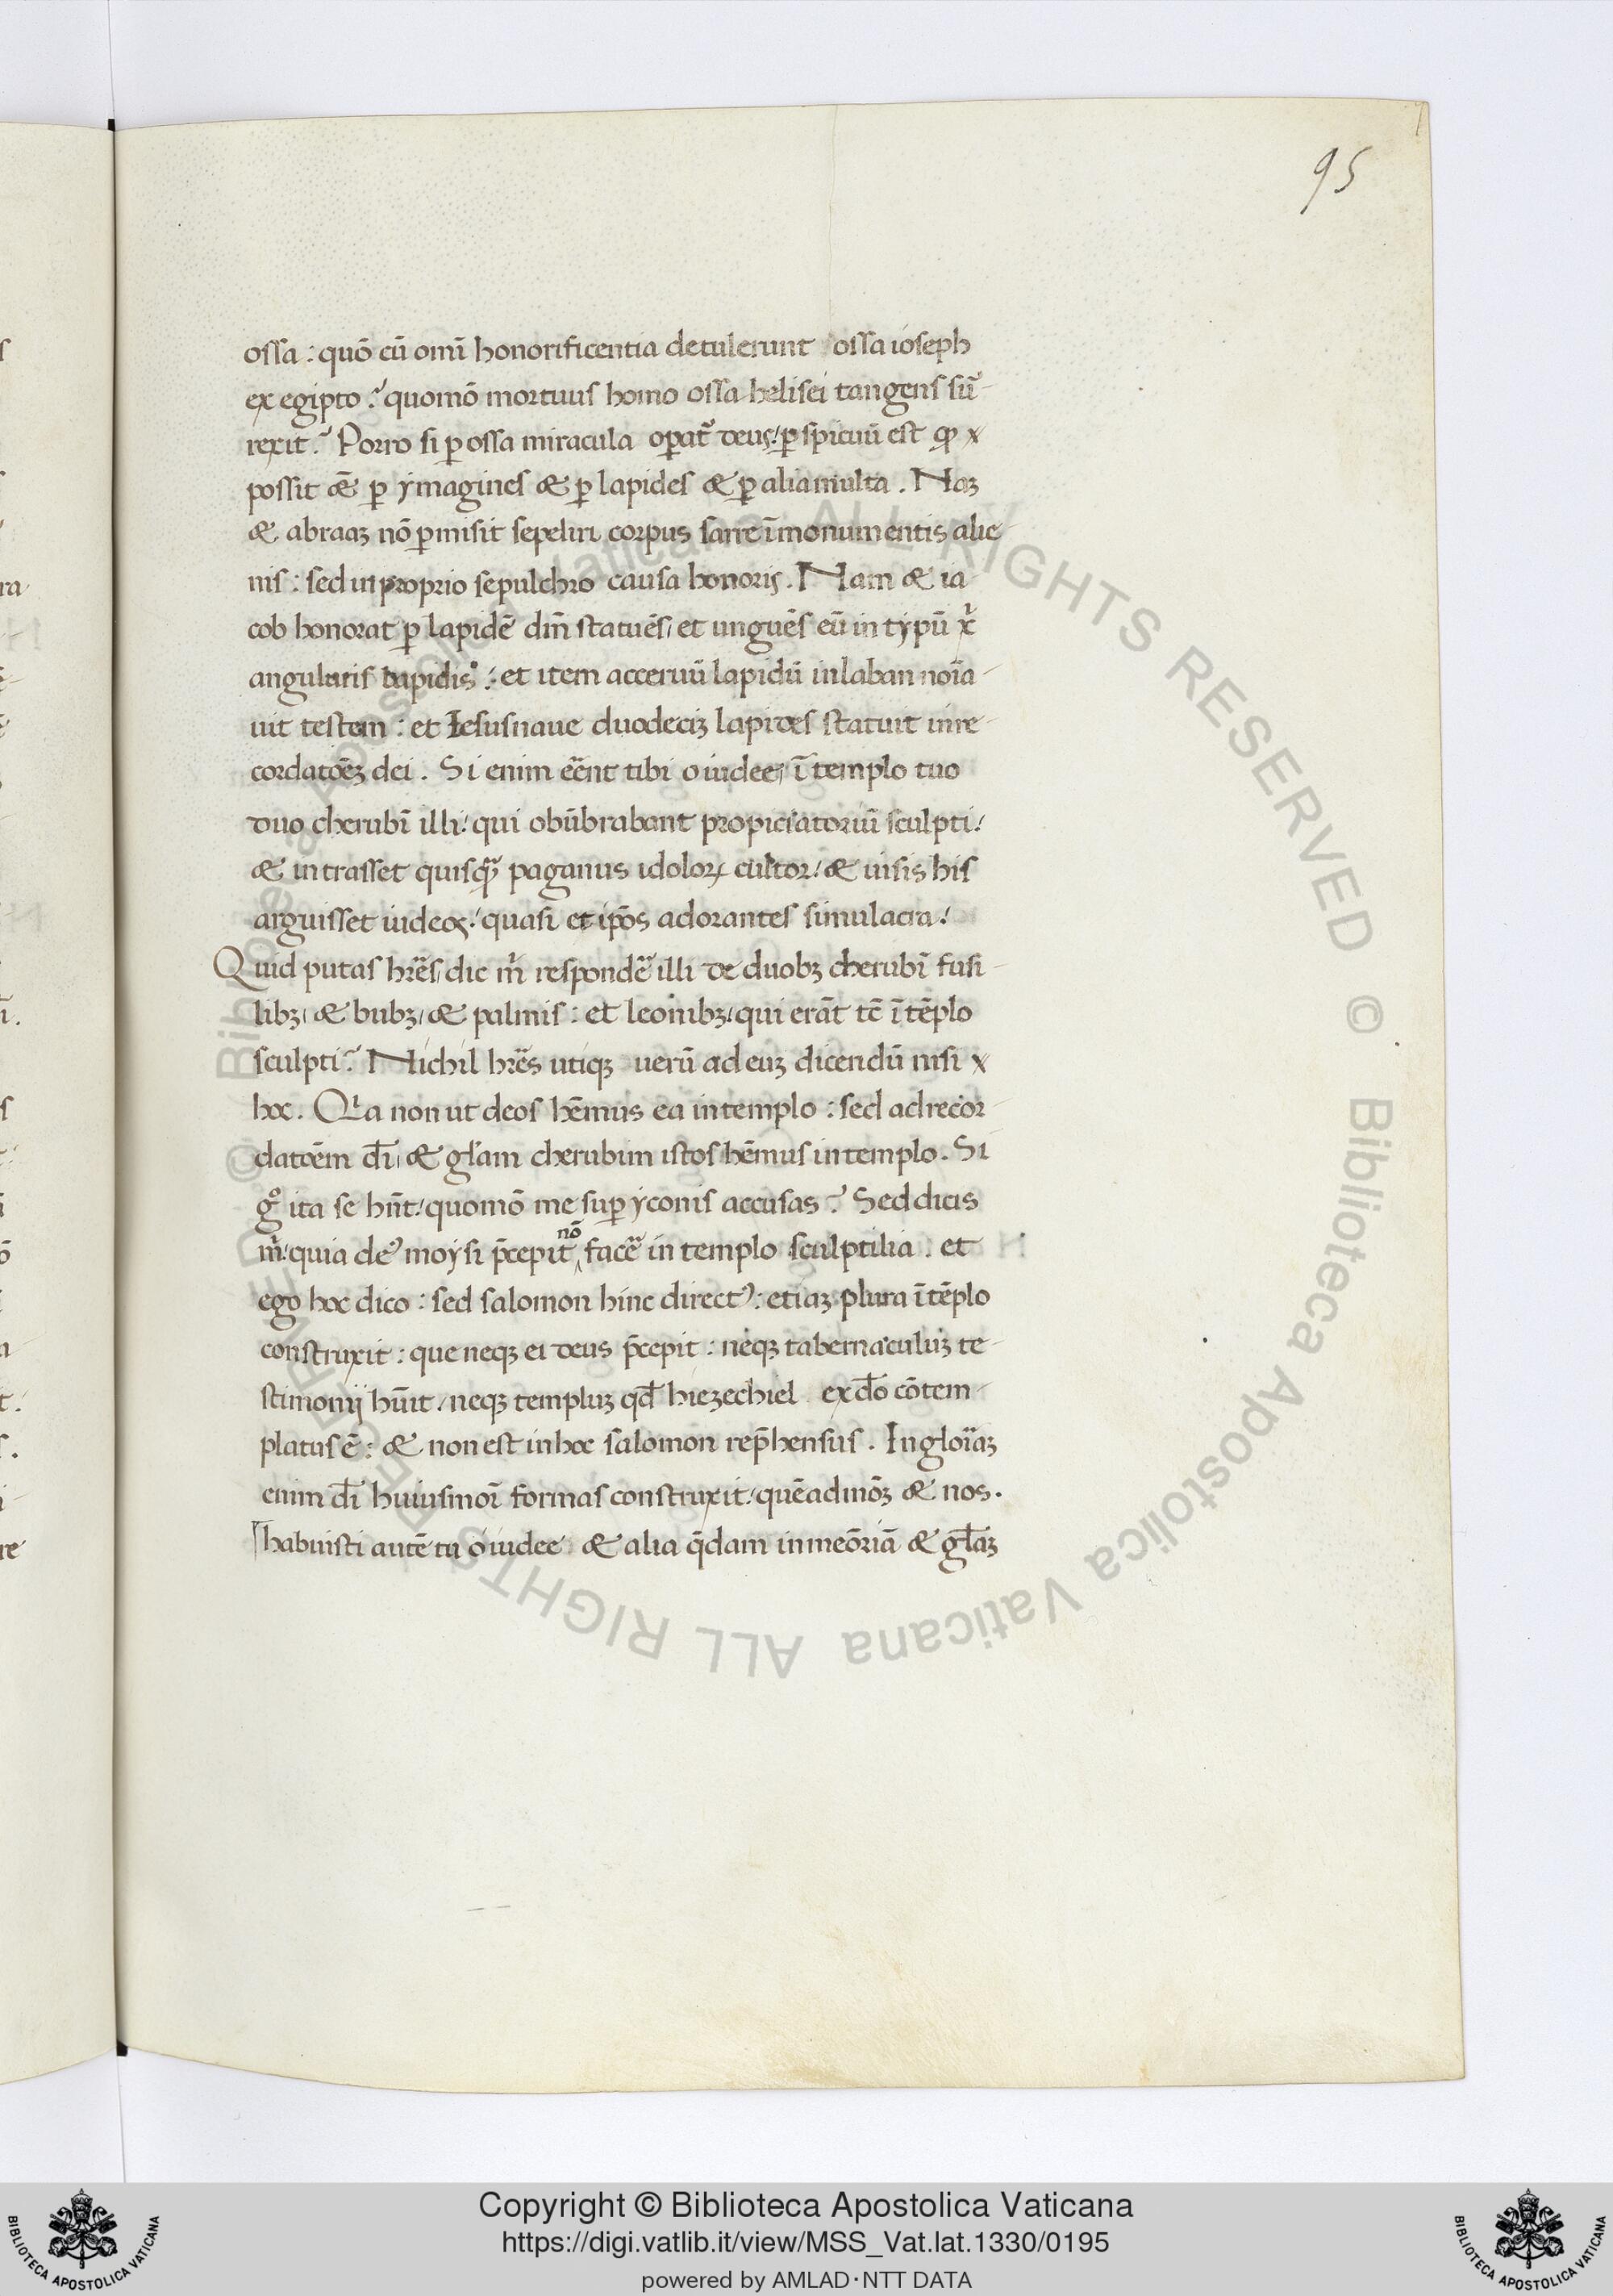 95
ossa : quō cū omī honorificentia detulerunt ossa ioseph
ex egipto? quomō mortuus homo ossa helisei tangens sur̄-
rexit? Porro si ꝑ ossa miracula oꝑat᷑ deus / ꝑspicuū est ꝙ x
possit & ꝑ ymagines & ꝑ lapides & ꝑ alia multa . Naꝫ
& abraaꝫ nō ꝑmisit sepeliri corpus sarre ī monumentis alie-
nis : sed in proprio sepulchro causa honoris . Nam & ia-
cob honorat ꝑ lapidē dn̄m statuēs / et unguēs eū in typū xi
angularis lapidis : et item acceruū lapidū in laban noīa-
uit testem : et Iesus naue duodeciꝫ lapides statuit in re-
cordatōēꝫ dei . Si enim eēnt tibi o iudee / ī templo tuo
duo cherubī illi / qui obūbrabant propiciatoriū sculpti /
& intrasset quisꝙ᷑ paganus idoloꝝ cultor / & uisis his
arguisset iudeos / quasi et ip̄os adorantes simulacra /
Quid putas hr̄es / dic mi respondē illi de duobꝫ cherubī fusi-
libꝫ / & bubꝫ / & palmis : et leonibꝫ / qui erāt tc̄ ī tēplo
sculpti? Nichil hr̄es utiqꝫ uerū ad euꝫ dicendū nisi x
hoc . Qia non ut deos hēmus ea in templo : sed ad recor-
datōēm dī / & gl̄am cherubim istos hēmus in templo . Si
go ita se hn̄t / quomō me suꝑ yconis accusas? Sed dicis
mi / quia deꝰ moysi p̄cepit nō facē in templo sculptilia . et
ego hoc dico : sed salomon hinc directꝰ : etiaꝫ plura ī tēplo
construxit : que neqꝫ ei deus p̄cepit : neqꝫ tabernaculuꝫ te-
stimonij hūit / neqꝫ templuꝫ qd̄ hiezechiel ex dō cōtem-
platus ē : & non est in hoc salomon rep̄hensus . In gloīaꝫ
enim dī huiusmōi formas construxit / quēadmōꝫ & nos .
habuisti autē tu o iudee & alia q̄dam in meōriā & gl̄aꝫ
© Biblioteca Apostolica Vaticana ALL RIGHTS RESERVED © Biblioteca Apostolica Vaticana ALL RIGHTS RESERVED
Copyright © Biblioteca Apostolica Vaticana
https://digi.vatlib.it/view/MSS_Vat.lat.1330/0195
powered by AMLAD·NTT DATA
BIBLIOTECA APOSTOLICA VATICANA
BIBLIOTECA APOSTOLICA VATICANA